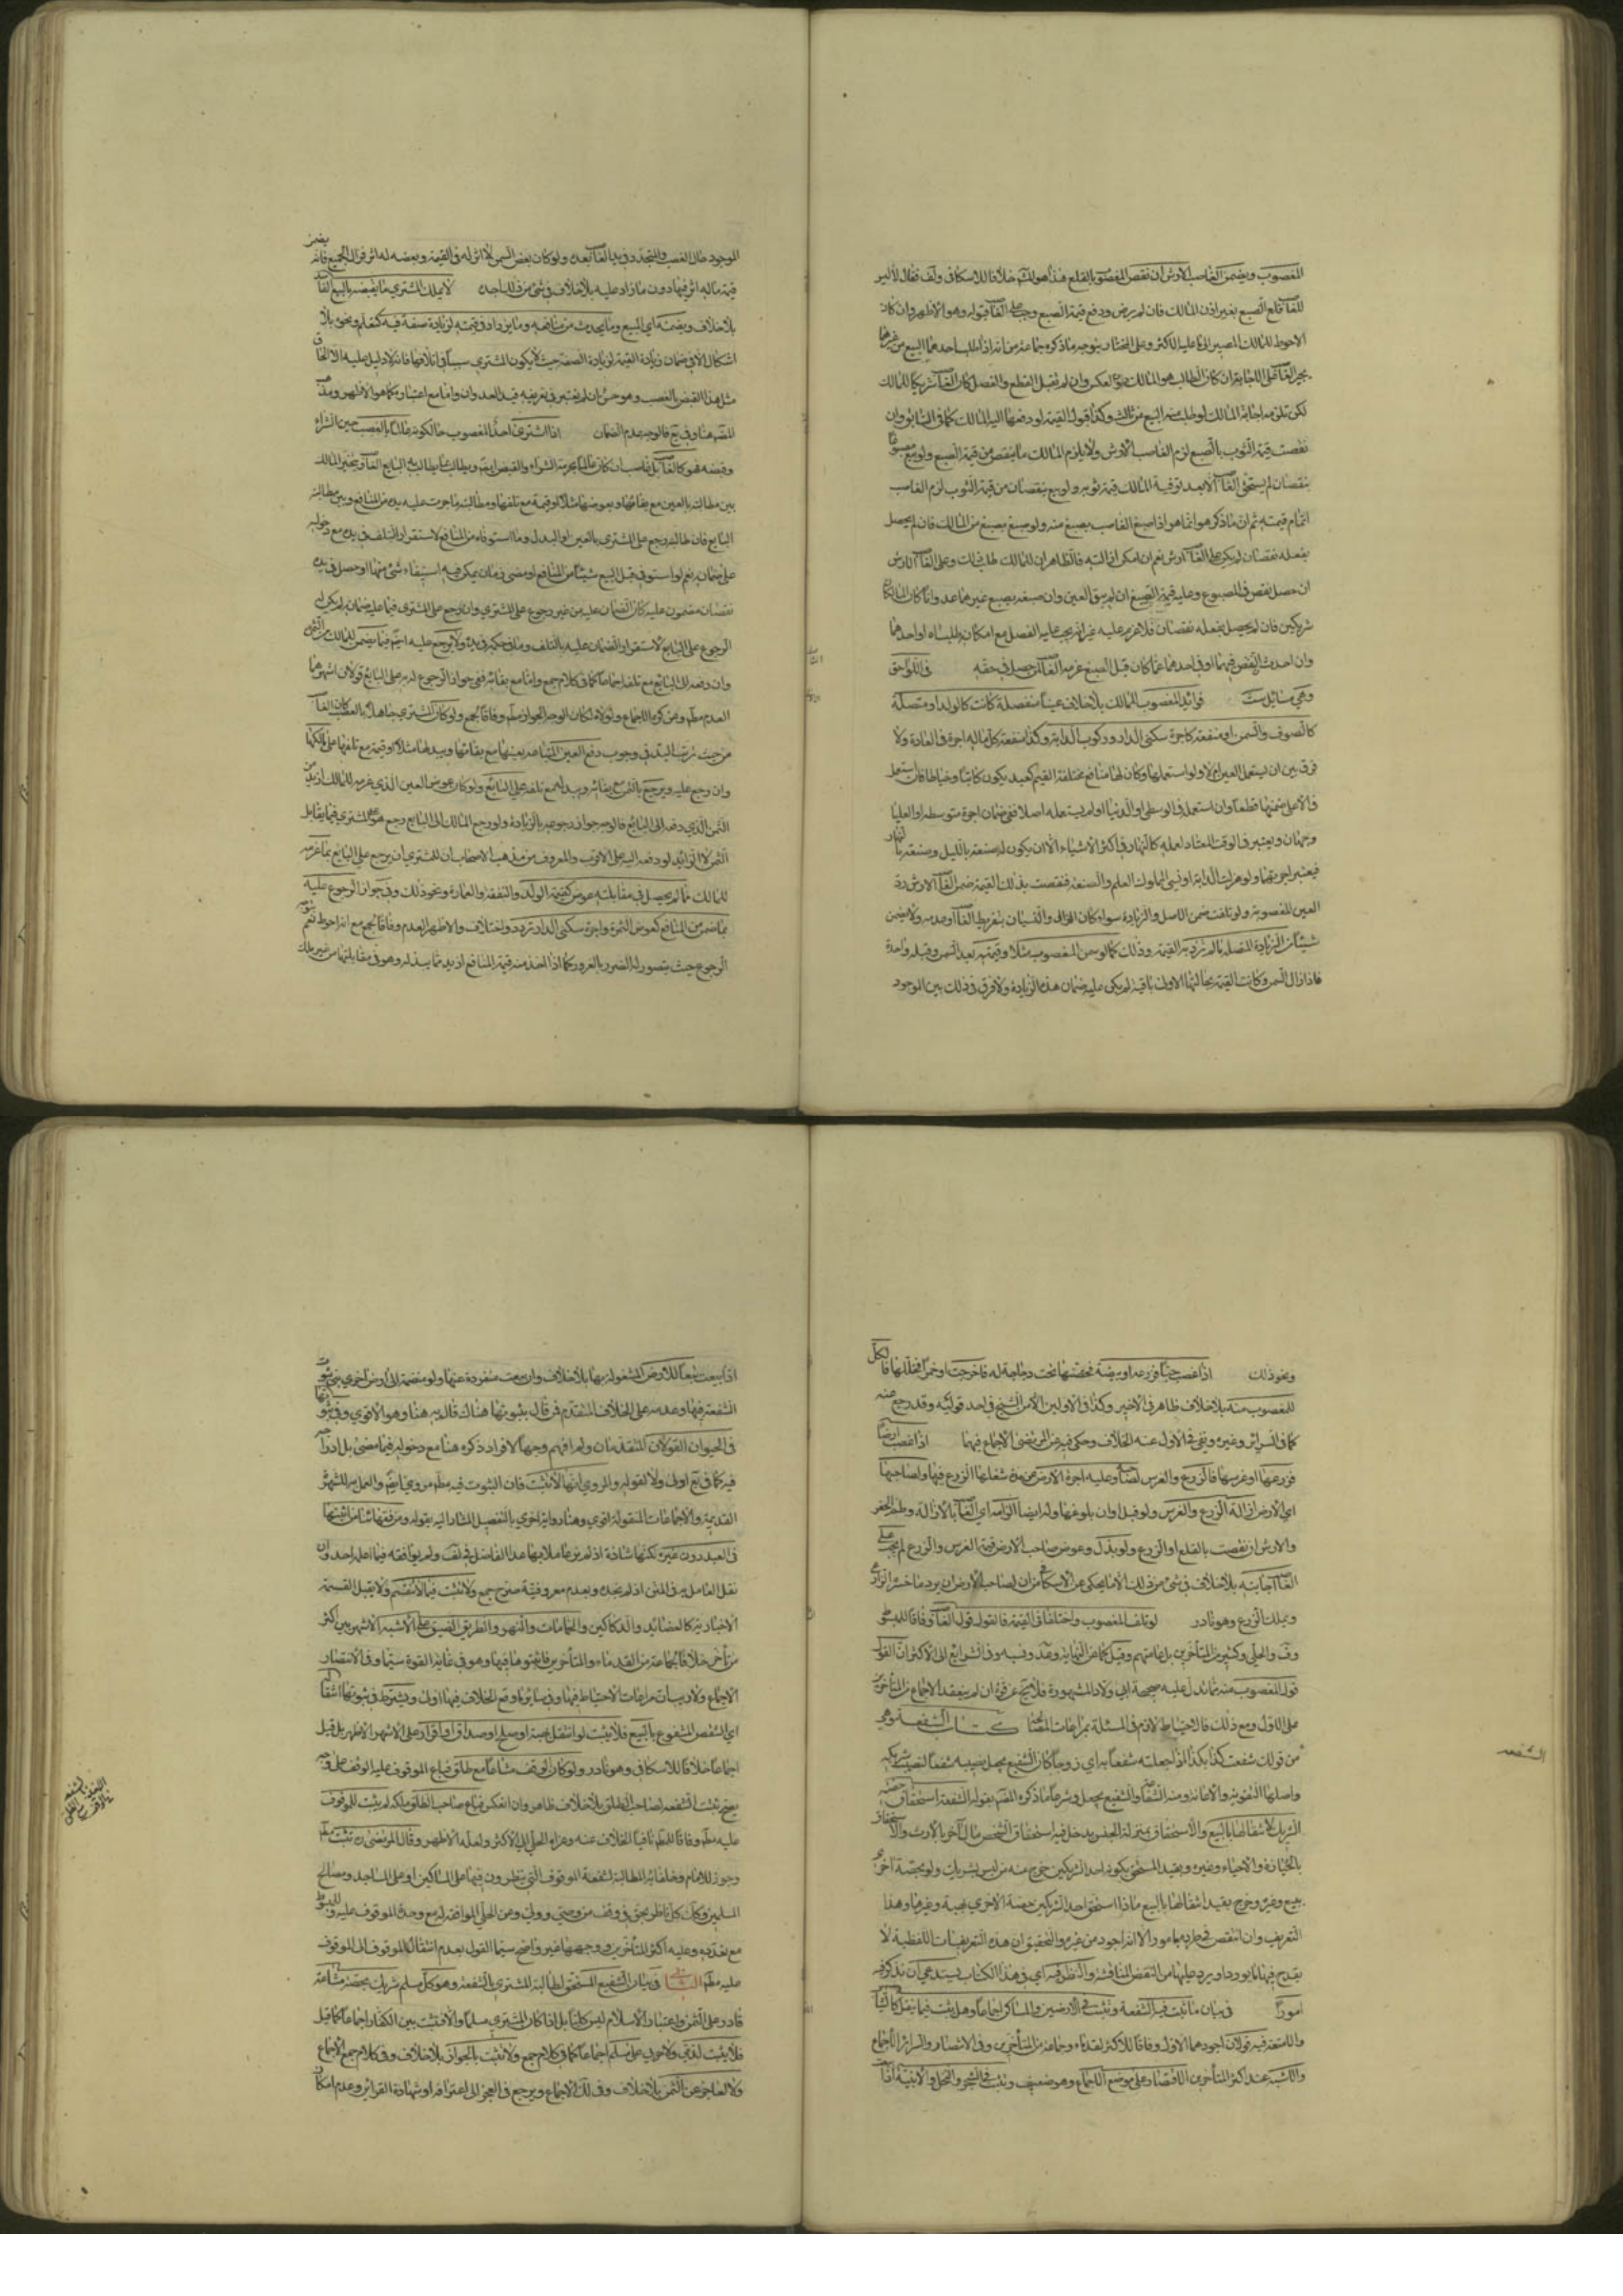 المغصوب ويضمن الغاصب الارش ان نقص المغصوب بالقلع هذا هو خلافا للاسكافي
قلع الصبغ بغير اذن المالك فان لم يرض ودفع قيمة الصبغ وجب على قبوله وهو الاظهر وان كان
الاحوط للمالك المصير الى ما عليه الاكثر وعلى المختار
لكن تلزمه اجابة المالك لو طلب منه البيع من ثالث وكذا قبول القيمة لو دفعها اليه المالك كما في السابق وان
نقصت قيمة الثوب بالصبغ لزم الغاصب الارش ولا يلزم المالك ما ينقص من قيمة الصبغ ولو بيع مصبوغا
بنقصان لم يستحق الا بعد توفية المالك قيمة ثوبه ولو بيع بنقصان من قيمة الثوب لزم الغاصب
اتمام قيمته ثم ان ما ذكر هو انما هو اذا صبغ الغاصب بصبغ منه ولو صبغ بصبغ من المالك فان لم يحصل
بفعله نقصان لم يكن على ارش نعم ان امكن ازالته فالظاهر ان للمالك طلب ذلك وعلى
ان حصل نقص في المصبوغ وعليه قيمة الصبغ ان لم يبق العين وان صبغه بصبغ غيرهما
شريكين فان لم يحصل بفعله نقصان فلا غرم عليه غير انه يجب عليه الفصل مع امكان
وان احدث النقص فيهما او في احدهما عما كان قبل الصبغ غرمه لمن حصل في حقه في اللواحق
وهي مسائل ست فوائد المغصوب للمالك بلا خلاف عينا منفصلة كانت كالولد او متصلة
كالصوف والسمن او منفعة كاجرة سكنى الدار وركوب الدابة وكذا منفعة كل ماله اجرة في العادة ولا
فرق بين ان يستعمل العين ام لا ولو استعملها وكان لها منافع مختلفة القيم كعبد يكون كاتبا وخياطا
فالاعلى ضمنها قطعا وان استعمله في الوسطى او الدنيا او لم يستعمله اصلا ففي ضمان اجرة متوسطه او العليا
وجهان ويعتبر في الوقت المعتاد لعمله كالنهار في اكثر الاشياء الا ان يكون له صنعة بالليل وصنعة بالنهار
فيعتبر اجرتهما ولو هزلت الدابة او نسي المملوك العلم والصنعة فنقصت بذلك القيمة ضمن الارش
العين المغصوبة ولو تلفت ضمن الاصل والزيادة سواء كان الهزال والنسيان بتفريط او عدمه ولا يضمن
شيئا من الزيادة المتصلة ما لم تزد به القيمة وذلك كما لو سمن المغصوب مثلا وقيمته بعد السمن وقبله واحدة
فاذا زال السمن وكانت القيمة بحالتها الاولى باقية لم يكن عليه ضمان هذه الزيادة ولا فرق في ذلك بين الموجود
الموجود حال الغصب والمتجدد في يد بعده ولو كان بعض السمن لا اثر له في القيمة وبعضه له اثر فزال الجميع فانه يضمن
قيمة ماله اثر فيها دون ما زاد عليه بلا خلاف في شيء من ذلك اجده لا يملك المشتري ما يقبضه بالبيع الفاسد
بلا خلاف ويضمنه اي المبيع وما يحدث من منافعه وما يزداد في قيمته لزيادة صفة فيه كتعلم ونحوه بلا
اشكال الا في ضمان زيادة القيمة لزيادة الصفة حيث لا يكون المشتري سببا في اتلافها فانه لا دليل عليه الا الحاق
مثل هذا القبض بالغصب وهو حسن ان لم نعتبر في تعريفه قيد العدوان واما مع اعتباره كما هو الاظهر
هنا وفي يع فالوجه عدم الضمان اذا اشترى احد المغصوب حالكونه عالما بالغصب حين الشراء
وقبضه فهو غاصب
بين مطالبته بالعين مع بقائها وبعوضها مثلا او قيمة مع تلفها
البايع فان طالبه رجع على المشتري بالعين او البدل وما استوفاه من المنافع لاستقرار التلف في يده مع دخوله
على ضمانه نعم لو استوفى قبل البيع شيئا من المنافع او مضى زمان يمكن فيه استيفاء شيء منها او حصل في يده
نقصان مضمون عليه كان الضمان عليه من غير رجوع على المشتري وان رجع على المشتري فيما عليه ضمانه لم يكن له
الرجوع على البايع لاستقرار الضمان عليه بالتلف
وان دفعه الى البايع مع تلفه اجماعا كما في كلام جمع واما مع بقائه ففي جواز الرجوع له به على البايع قولان اشهرهما
العدم ولولاه لكان الوجه الجواز وفاقا لجمع ولو كان المشتري جاهلا بالغصب
من حيث ترتب اليد في وجوب دفع العين المتباعه بعينها مع بقائها وببدلها مثلا او قيمة مع تلفها على مالكها
وان رجع عليه ويرجع بالثمن مع بقائه وببدله مع تلفه على البايع ولو كان عوض العين الذي غرمه للمالك ازيد من
الثمن الذي دفعه الى البايع فالوجه جواز رجوعه بالزيادة ولو رجع المالك الى البايع رجع هو على المشتري فيما يقابل
الثمن لا الزائد لو دفعه اليه على الاقرب والمعروف من مذهب الاصحاب ان للمشتري ان يرجع على البايع بما غرمه
للمالك ما لم يحصل في مقابلته عوض كقيمة الولد والنفقة والعمارة ونحو ذلك وفي جواز الرجوع عليه
بما ضمن من المنافع كعوض الثمرة واجرة سكنى الدار تردد واختلاف والاظهر العدم وفاقا لجمع مع انه احوط نعم
الرجوع حيث يتصور له الضرر بالغرور كما اذا اخذ منه قيمة المنافع ازيد مما يبذله وهو في مقابلتها من غير ملك
ونحو ذلك اذا غصب حبا فزرعه او بيضة فحضنها تحت دجاجة له فافرخت او خمرا فخللها فالكل
للمغصوب منه بلا خلاف ظاهر في الاخير وكذا في الاولين الا من الشيخ في احد قوليه وقد رجع عنه
كما في السرائر وغيره ونفي في الاول عنه الخلاف وحكي فيه عن المرتضى الاجماع فيهما اذا غصب ارضا
فزرعها او غرسها فالزرع والغرس لصاحبه وعليه اجرة الارض عن مدة شغلها الزرع فيها ولصاحبها
اي الارض ازالة الزرع والغرس ولو قبل اوان بلوغها وله ايضا الزامه اي بالازالة وطم الحفر
والارش ان نقصت بالقلع او الزرع ولو بذل وعوض صاحب الارض قيمة الغرس والزرع لم يجب على
اجابته بلا خلاف في شيء من ذلك الا ما يحكى عن الاسكافي من ان لصاحب الارض ان يرد ما خسره الزارع
ويملك الزرع وهو نادر لو تلف المغصوب واختلفا في القيمة فالقول قول وفاقا للمبسوط
وف والحلي وكثير من المتأخرين بل عامتهم وقيل كما عن النهاية وفي الشرائع الى الاكثر ان القول
قول المغصوب منه بما تدل عليه صحيحة ابي ولاد المشهورة
على الاول ومع ذلك فالاحتياط لازم في المسئلة كتاب الشفعة وهي
من قولك شفعت كذا بكذا اذا جعلته شفعا به اي زوجا كان الشفيع يجعل نصيبه شفعا لنصيب شريكه
واصلها التقوية والاعانة ومنه الشفاعة والشفيع وشرعا ما ذكره بقوله الشفعة استحقاق حصة
الشريك لانتقالها بالبيع والاستحقاق بمنزلة الجنس يدخل فيه استحقاق الشخص مال آخر بالارث والاستحقاق
بالحيازة والاحياء وغيره وبقيد المستحق بكونه احد الشريكين خرج منه من ليس بشريك ولو بجهة اخرى
ببيع وغيره وخرج بقيد انتقالها بالبيع ما اذا استحق احد الشريكين حصة الاخرى بهبة وغيرها وهذا
التعريف وان انتقض في طرده بامور الا انه اجود من غيره والتحقيق ان هذه التعريفات اللفظية لا
يقدح فيها ما يورد او يرد عليها من النقض والمناقشة والنظر فيه اي في هذا الكتاب يستدعي ان نذكر فيه
امورا في بيان ما تثبت فيه الشفعة وتثبت في الارضين والمساكن اجماعا وهل تثبت فيما ينقل كالثياب
والامتعة فيه قولان اجودهما الاول وفاقا للاكثر القدماء وجماعة من المتأخرين وفي الانتصار والسرائر الاجماع
والاشبه عند اكثر المتأخرين الاقتصار على موضع الاجماع وهو ضعيف وتثبت في الشجر والنخل والابنية اذا
الشفعه
اذا بيعت تبعا للارض المشغولة بها بلا خلاف وان بيعت منفردة عنها ولو منضمة الى ارض اخرى بني ثبوت
الشفعة فيها وعدمه على الخلاف المتقدم فمن قال بثبوتها هناك قال به هنا وهو الاقوى وفي ثبوتها
في الحيوان القولان المتقدمان ولم افهم وجها لافراد ذكره هنا مع دخوله فيما مضى
فيه كما في يع اولى ولا لقوله والمروي انها لا تثبت فان الثبوت فيه مروي ايضا والعمل به للشهرة
القديمة والاجماعات المنقولة اقوى وهنا رواية اخرى بالتفصيل المشار اليه بقوله ومن فقهائنا من اثبتها
في العبد دون غيره لكنها شاذة اذ لم نر عاملا بها عدا الفاضل في لف ولم يوافقه فيما اعلم احد وان
نقل العامل به في المتن اذ لم نجده وبعدم معروفيته صرح جمع ولا تثبت فيما لا ينقسم ولا يقبل القسمة
الاجبارية كالعضائد والدكاكين والحمامات والنهر والطريق الضيق على الاشبه الاشهر بين اكثر
من تأخر خلافا لجماعة من القدماء والمتأخرين فاثبتوها فيها وهو في غاية القوة سيما وفي الانتصار
الاجماع ولا ريب ان مراعات الاحتياط فيها وفي سابرما وقع الخلاف فيها اولى ويشترط في ثبوتها انتقال
اي الشقص المشفوع بالبيع فلا تثبت لو انتقل بهبة او صلح او صداق او اقرار على الاشهر الاظهر بل قيل
اجماعا خلافا للاسكافي وهو نادر ولو كان الوقف مشاعا مع طلق فباع الموقوف عليه الوقف على وجه
يصح تثبت الشفعة لصاحب الطلق بلا خلاف ظاهر وان انعكس فباع صاحب الطلق ملكه لم يثبت للموقوف
عليه وفاقا نافيا الخلاف عنه وعزاه الحلي الى الاكثر ولعله الاظهر وقال المرتضى ره تثبت
وجوز للامام وخلفائه المطالبة بشفعة الموقوف التي ينظرون فيها على المساكين او على المساجد ومصالح
المسلمين وكذا كل ناظر بحق في وقف من وصي وولي وعن الحلي الموافقة له مع وحدة الموقوف عليه
مع تعدده وعليه اكثر المتأخرين ووجهها غير واضح سيما القول بعدم انتقال الموقوف الى الموقوف
عليه الثاني في بيان الشفيع المستحق لمطالبة المشتري بالشفعة وهو كل مسلم شريك بحصة مشاعة
قادر على الثمن واعتبار الاسلام ليس كليا بل اذا كان المشتري مسلما والا فتثبت بين الكفار اجماعا كما قيل
فلا يثبت لذمي ولا حربي على مسلم اجماعا كما في كلام جمع ولا تثبت بالجوار بلا خلاف وفي كلام جمع الاجماع
ولا لعاجز عن الثمن بلا خلاف وفي الاجماع ويرجع في العجز الى اعترافه او شهادة القرائن وعدم امكان